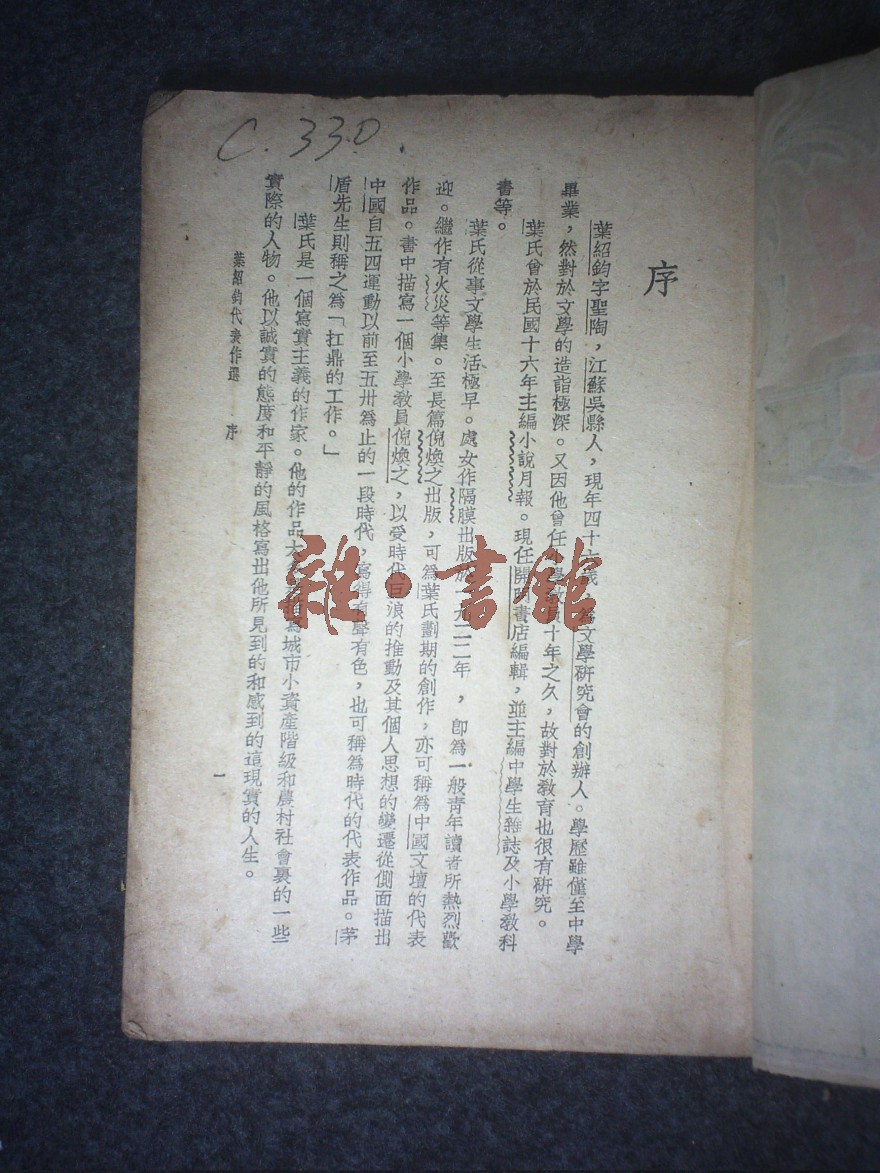 C. 330
序
葉紹鈞字聖陶，江蘇吳縣人，現年四十六歲。爲文學研究會的創辦人。學歷雖僅至中學
畢業，然對於文學的造詣極深。又因他曾任小學教員十年之久，故對於教育也很有研究。
葉氏曾於民國十六年主編小說月報。現任開明書店編輯，並主編中學生雜誌及小學教科
書等。
葉氏從事文學生活極早。處女作隔膜出版於一九二二年，卽爲一般靑年讀者所熱烈歡
迎。繼作有火災等集。至長篇倪煥之出版，可爲葉氏劃期的創作，亦可稱爲中國文壇的代表
作品。書中描寫一個小學教員倪煥之，以受時代巨浪的推動及其個人思想的變遷從側面描出
中國自五四運動以前至五卅爲止的一段時代，寫得有聲有色，也可稱爲時代的代表作品。茅
盾先生則稱之爲「扛鼎的工作。」
葉氏是一個寫實主義的作家。他的作品大描寫城市小資產階級和農村社會裏的一些
實際的人物。他以誠實的態度和平靜的風格寫出他所見到的和感到的這現實的人生。
葉紹鈞代表作選 序
一
雜·書館